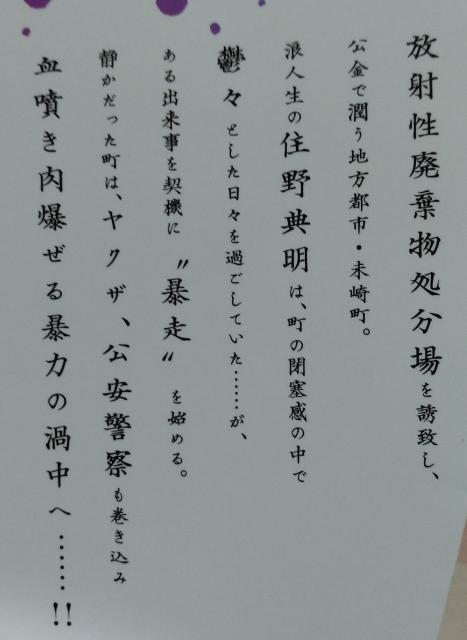 放射性廃棄物処分場を誘致し、
公金で潤う地方都市・未崎町。
浪人生の住野典明は、町の閉塞感の中で
鬱々とした日々を過ごしていた……が、
ある出来事を契機に〝暴走〟を始める。
静かだった町は、ヤクザ、公安警察も巻き込み
血噴き肉爆ぜる暴力の渦中へ……!!